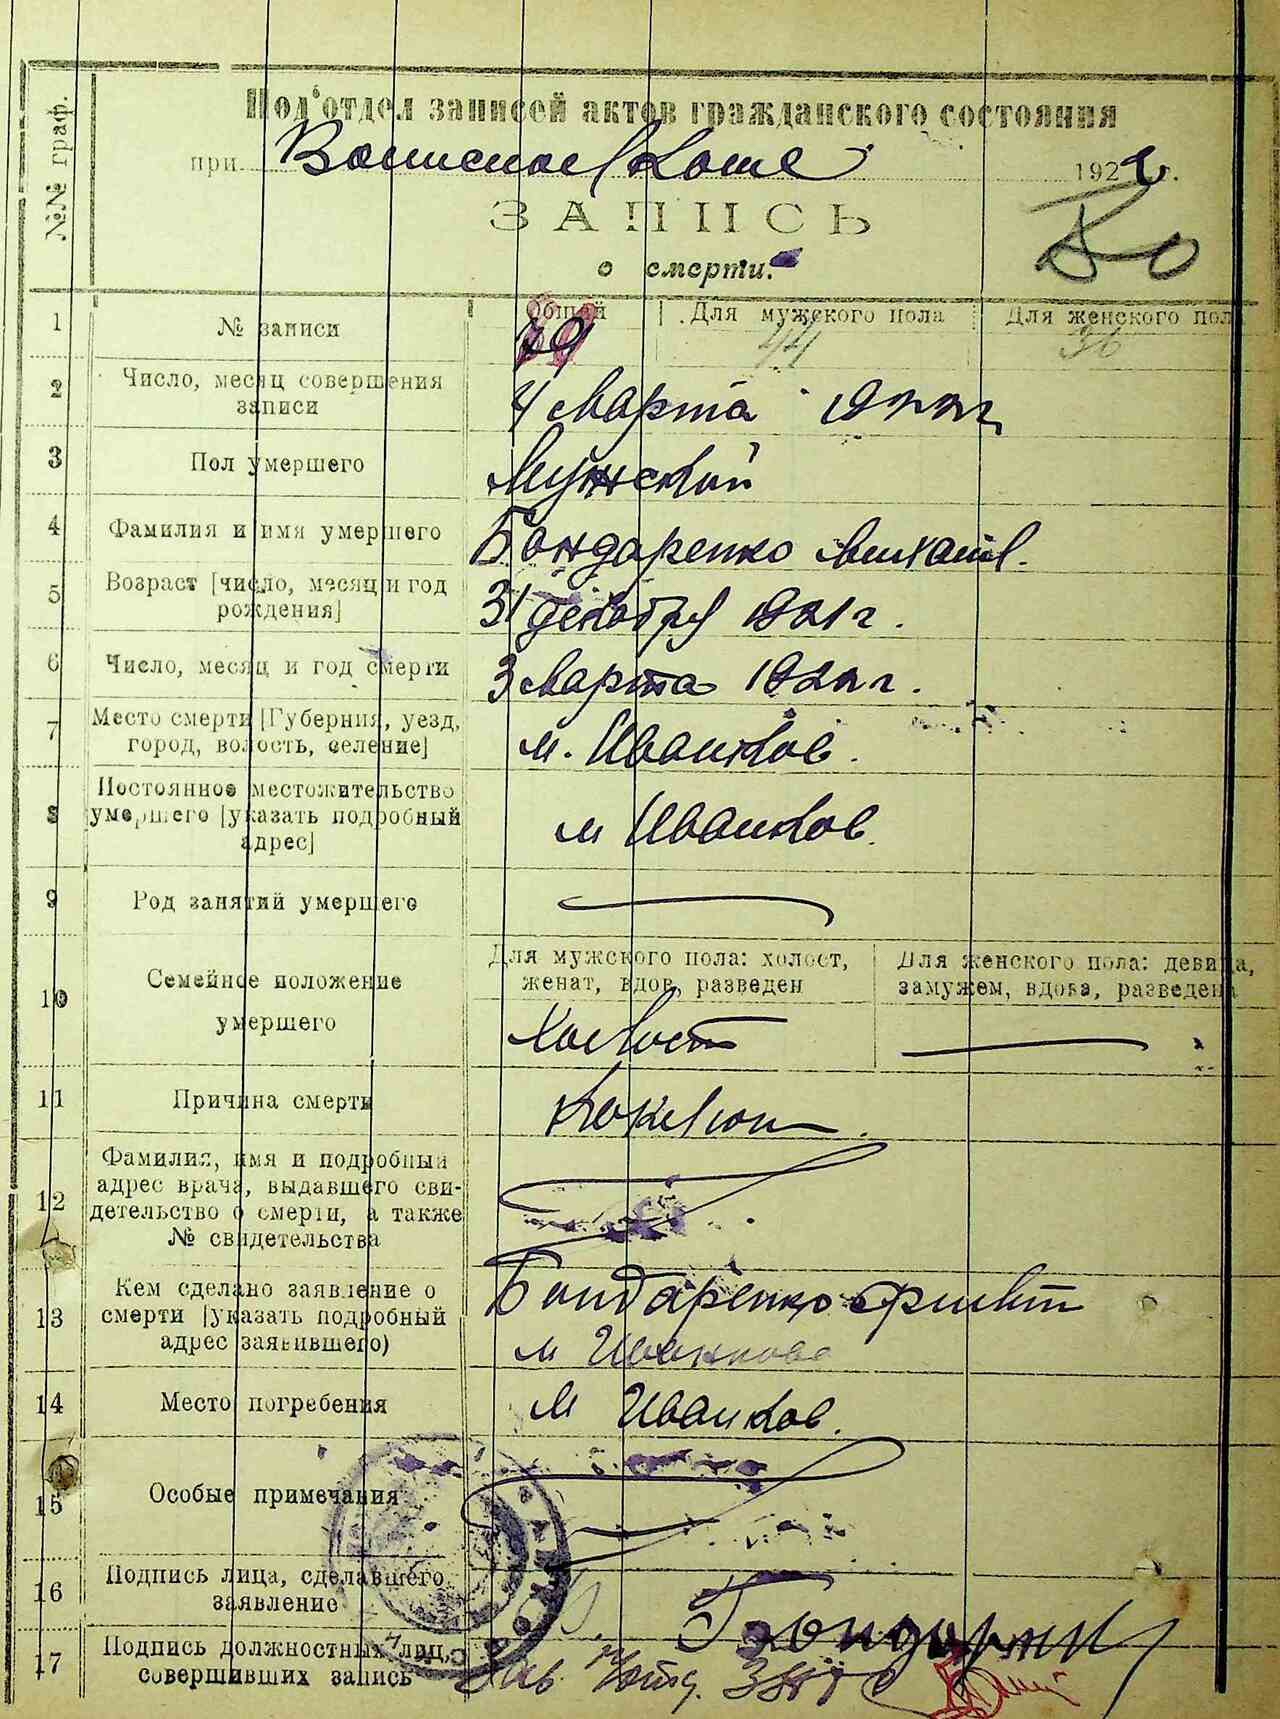 №№ граф.
Под'отдел записей актов гражданского состояния
при 1922 г.
ЗАПИСЬ
о смерти.
1 № записи Общий Для мужского пола Для женского пол
79 44 36
2 Число, месяц совершения
записи
4 Марта 1922 г
3 Пол умершего Мужской
4 Фамилия и имя умершего Бондаренко Михаил.
5 Возраст [число, месяц и год
рождения]
31 декабря 1921 г.
6 Число, месяц и год смерти 3 Марта 1922 г.
7 Место смерти [Губерния, уезд,
город, волость, селение]
м. Иванков.
8 Постоянное местожительство
умершего [указать подробный
адрес]
м Иванков.
9 Род занятий умершего
10 Семейное положение
умершего
Для мужского пола: холост,
женат, вдов, разведен
Для женского пола: девица,
замужем, вдова, разведена
Холост
11 Причина смерти Коклюш.
12 Фамилия, имя и подробный
адрес врача, выдавшего сви-
детельство о смерти, а также
№ свидетельства
13 Кем сделано заявление о
смерти [указать подробный
адрес заявившего)
Бондаренко
м Иванкова
14 Место погребения м Иванков.
15 Особые примечания
16 Подпись лица, сделавшего
заявление
17 Подпись должностных лиц,
совершивших запись
Зав.